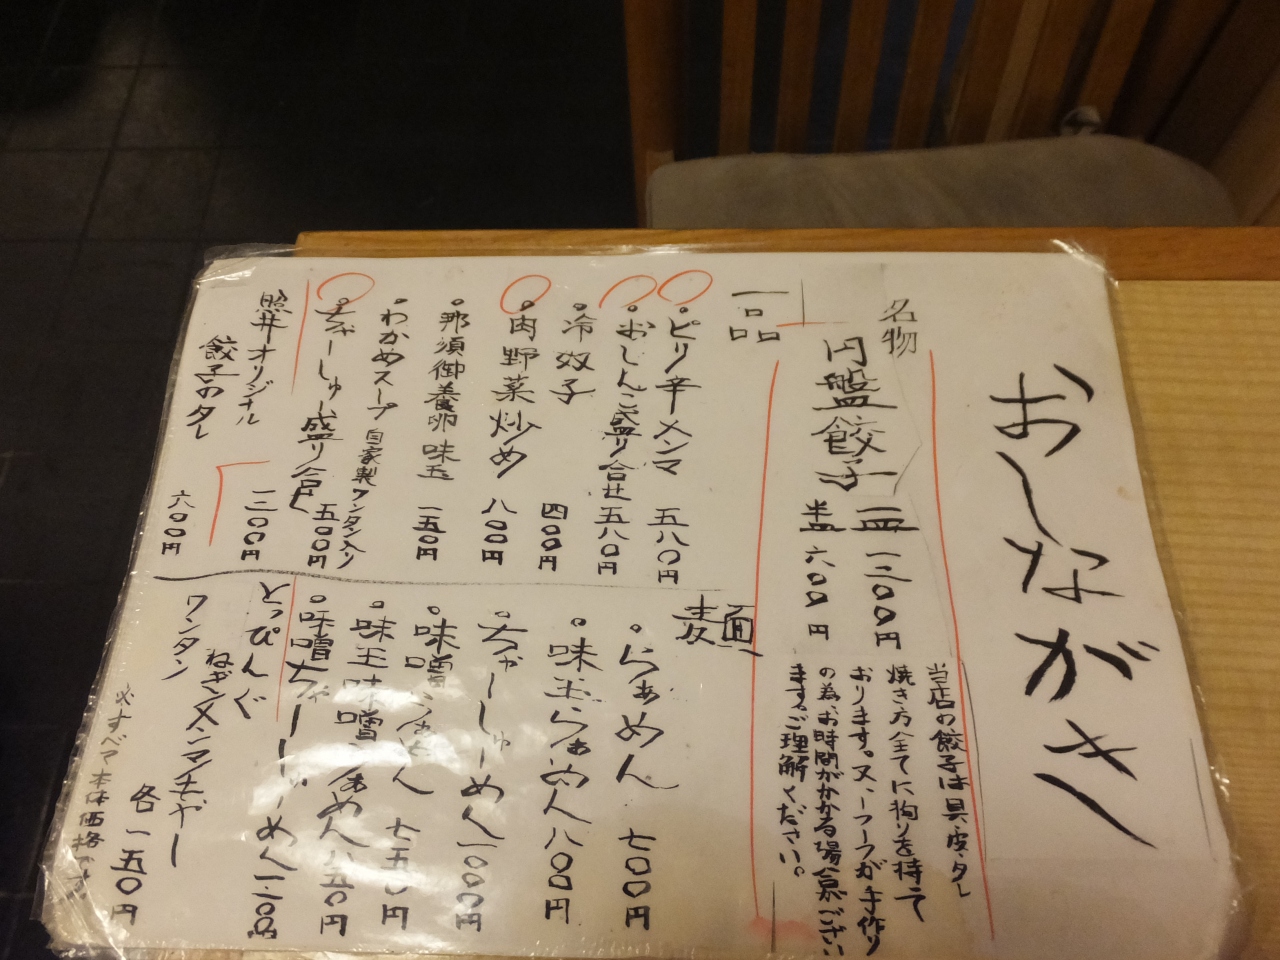 おしながき
名物
円盤餃子 一皿 一二〇〇円
半皿 六〇〇円
当店の餃子は具・皮・タレ
焼き方全てに拘りを持て
おります。又、一つ一つが手作り
の為、お時間がかかる場合がござい
ます。ご理解ください。
一品
・ピリ辛メンマ 五八〇円
・おしんこ盛り合せ 五八〇円
・冷奴子 四〇〇円
・肉野菜炒め 八〇〇円
・那須御養卵 味玉 一五〇円
・わかめスープ 自家製ワンタン入り
・ちゃーしゅー盛り合せ 五〇〇円
照井オリジナル
餃子のタレ
六〇〇円
麺
・らぁめん 七〇〇円
・味玉らぁめん 八〇〇円
・ちゃーしゅーめん 一〇〇〇円
・味噌らぁめん 七五〇円
・味玉味噌らぁめん 八五〇円
・味噌ちゃーしゅーめん
とっぴんぐ
ねぎ・メンマ・チャー
ワンタン
各一五〇円
※すべて本体価格です